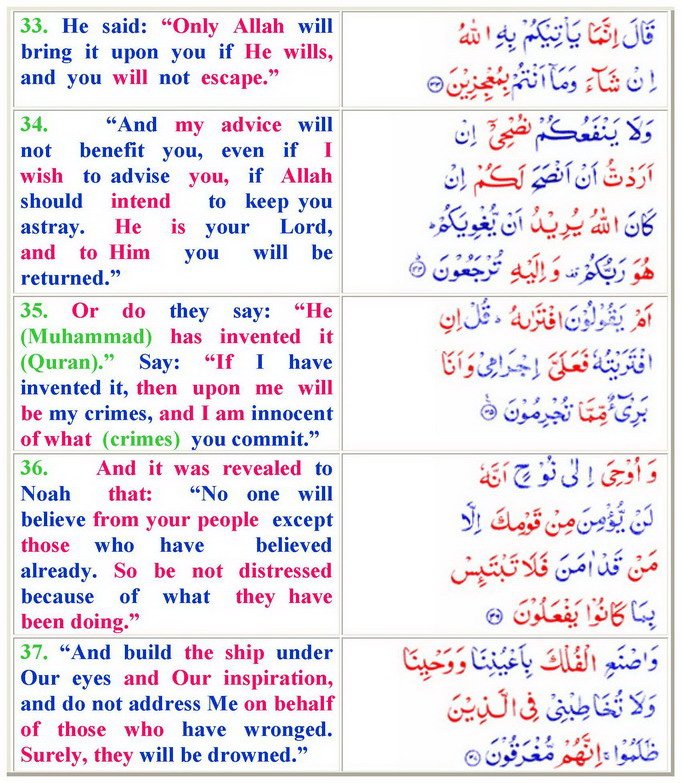 33. He said: “Only Allah will
bring it upon you if He wills,
and you will not escape.”
قَالَ اِنَّمَا يَاْتِيْكُمْ بِهِ اللّٰهُ
اِنْ شَآءَ وَمَاۤ اَنْتُمْ بِمُعْجِزِيْنَ ﴿۳۳﴾
34. “And my advice will
not benefit you, even if I
wish to advise you, if Allah
should intend to keep you
astray. He is your Lord,
and to Him you will be
returned.”
وَلَا يَنْفَعُكُمْ نُصْحِيْۤ اِنْ
اَرَدْتُّ اَنْ اَنْصَحَ لَكُمْ اِنْ
كَانَ اللّٰهُ يُرِيْدُ اَنْ يُّغْوِيَكُمْ ؕ
هُوَ رَبُّكُمْ ۟ وَاِلَيْهِ تُرْجَعُوْنَ ﴿۳۴﴾
35. Or do they say: “He
(Muhammad) has invented it
(Quran).” Say: “If I have
invented it, then upon me will
be my crimes, and I am innocent
of what (crimes) you commit.”
اَمْ يَقُوْلُوْنَ افْتَرٰىهُ ؕ قُلْ اِنِ
افْتَرَيْتُهٗ فَعَلَيَّ اِجْرَامِيْ وَاَنَا
بَرِيْٓءٌ مِّمَّا تُجْرِمُوْنَ ﴿۳۵﴾
36. And it was revealed to
Noah that: “No one will
believe from your people except
those who have believed
already. So be not distressed
because of what they have
been doing.”
وَاُوْحِيَ اِلٰى نُوْحٍ اَنَّهٗ
لَنْ يُّؤْمِنَ مِنْ قَوْمِكَ اِلَّا
مَنْ قَدْ اٰمَنَ فَلَا تَبْتَئِسْ
بِمَا كَانُوْا يَفْعَلُوْنَ ﴿۳۶﴾
37. “And build the ship under
Our eyes and Our inspiration,
and do not address Me on behalf
of those who have wronged.
Surely, they will be drowned.”
وَاصْنَعِ الْفُلْكَ بِاَعْيُنِنَا وَوَحْيِنَا
وَلَا تُخَاطِبْنِيْ فِي الَّذِيْنَ
ظَلَمُوْا ۚ اِنَّهُمْ مُّغْرَقُوْنَ ﴿۳۷﴾